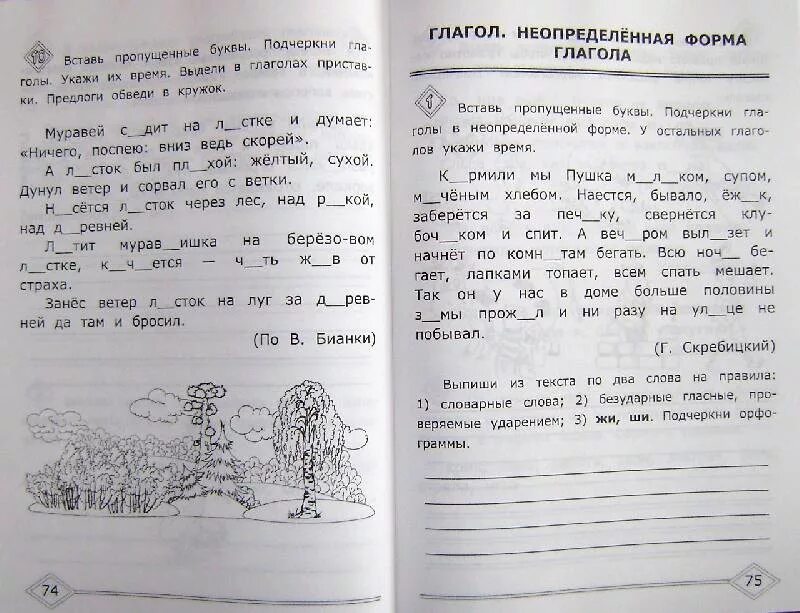 10 Вставь пропущенные буквы. Подчеркни гла-
голы. Укажи их время. Выдели в глаголах пристав-
ки. Предлоги обведи в кружок.
Муравей с__дит на л__стке и думает:
«Ничего, поспею: вниз ведь скорей».
А л__сток был пл__хой: жёлтый, сухой.
Дунул ветер и сорвал его с ветки.
Н__сётся л__сток через лес, над р__кой,
над д__ревней.
Л__тит мурав__ишка на берёзо-вом
л__стке, к__ч__ется — ч__ть ж__в от
страха.
Занёс ветер л__сток на луг за д__рев-
ней да там и бросил.
(По В. Бианки)
74
ГЛАГОЛ. НЕОПРЕДЕЛЁННАЯ ФОРМА
ГЛАГОЛА
1 Вставь пропущенные буквы. Подчеркни гла-
голы в неопределённой форме. У остальных глаго-
лов укажи время.
К__рмили мы Пушка м__л__ком, супом,
м__чёным хлебом. Наестся, бывало, ёж__к,
заберётся за печ__ку, свернётся клу-
боч__ком и спит. А веч__ром выл__зет и
начнёт по комн__там бегать. Всю ноч__ бе-
гает, лапками топает, всем спать мешает.
Так он у нас в доме больше половины
з__мы прож__л и ни разу на ул__це не
побывал.
(Г. Скребицкий)
Выпиши из текста по два слова на правила:
1) словарные слова; 2) безударные гласные, про-
веряемые ударением; 3) жи, ши. Подчеркни орфо-
граммы.
75